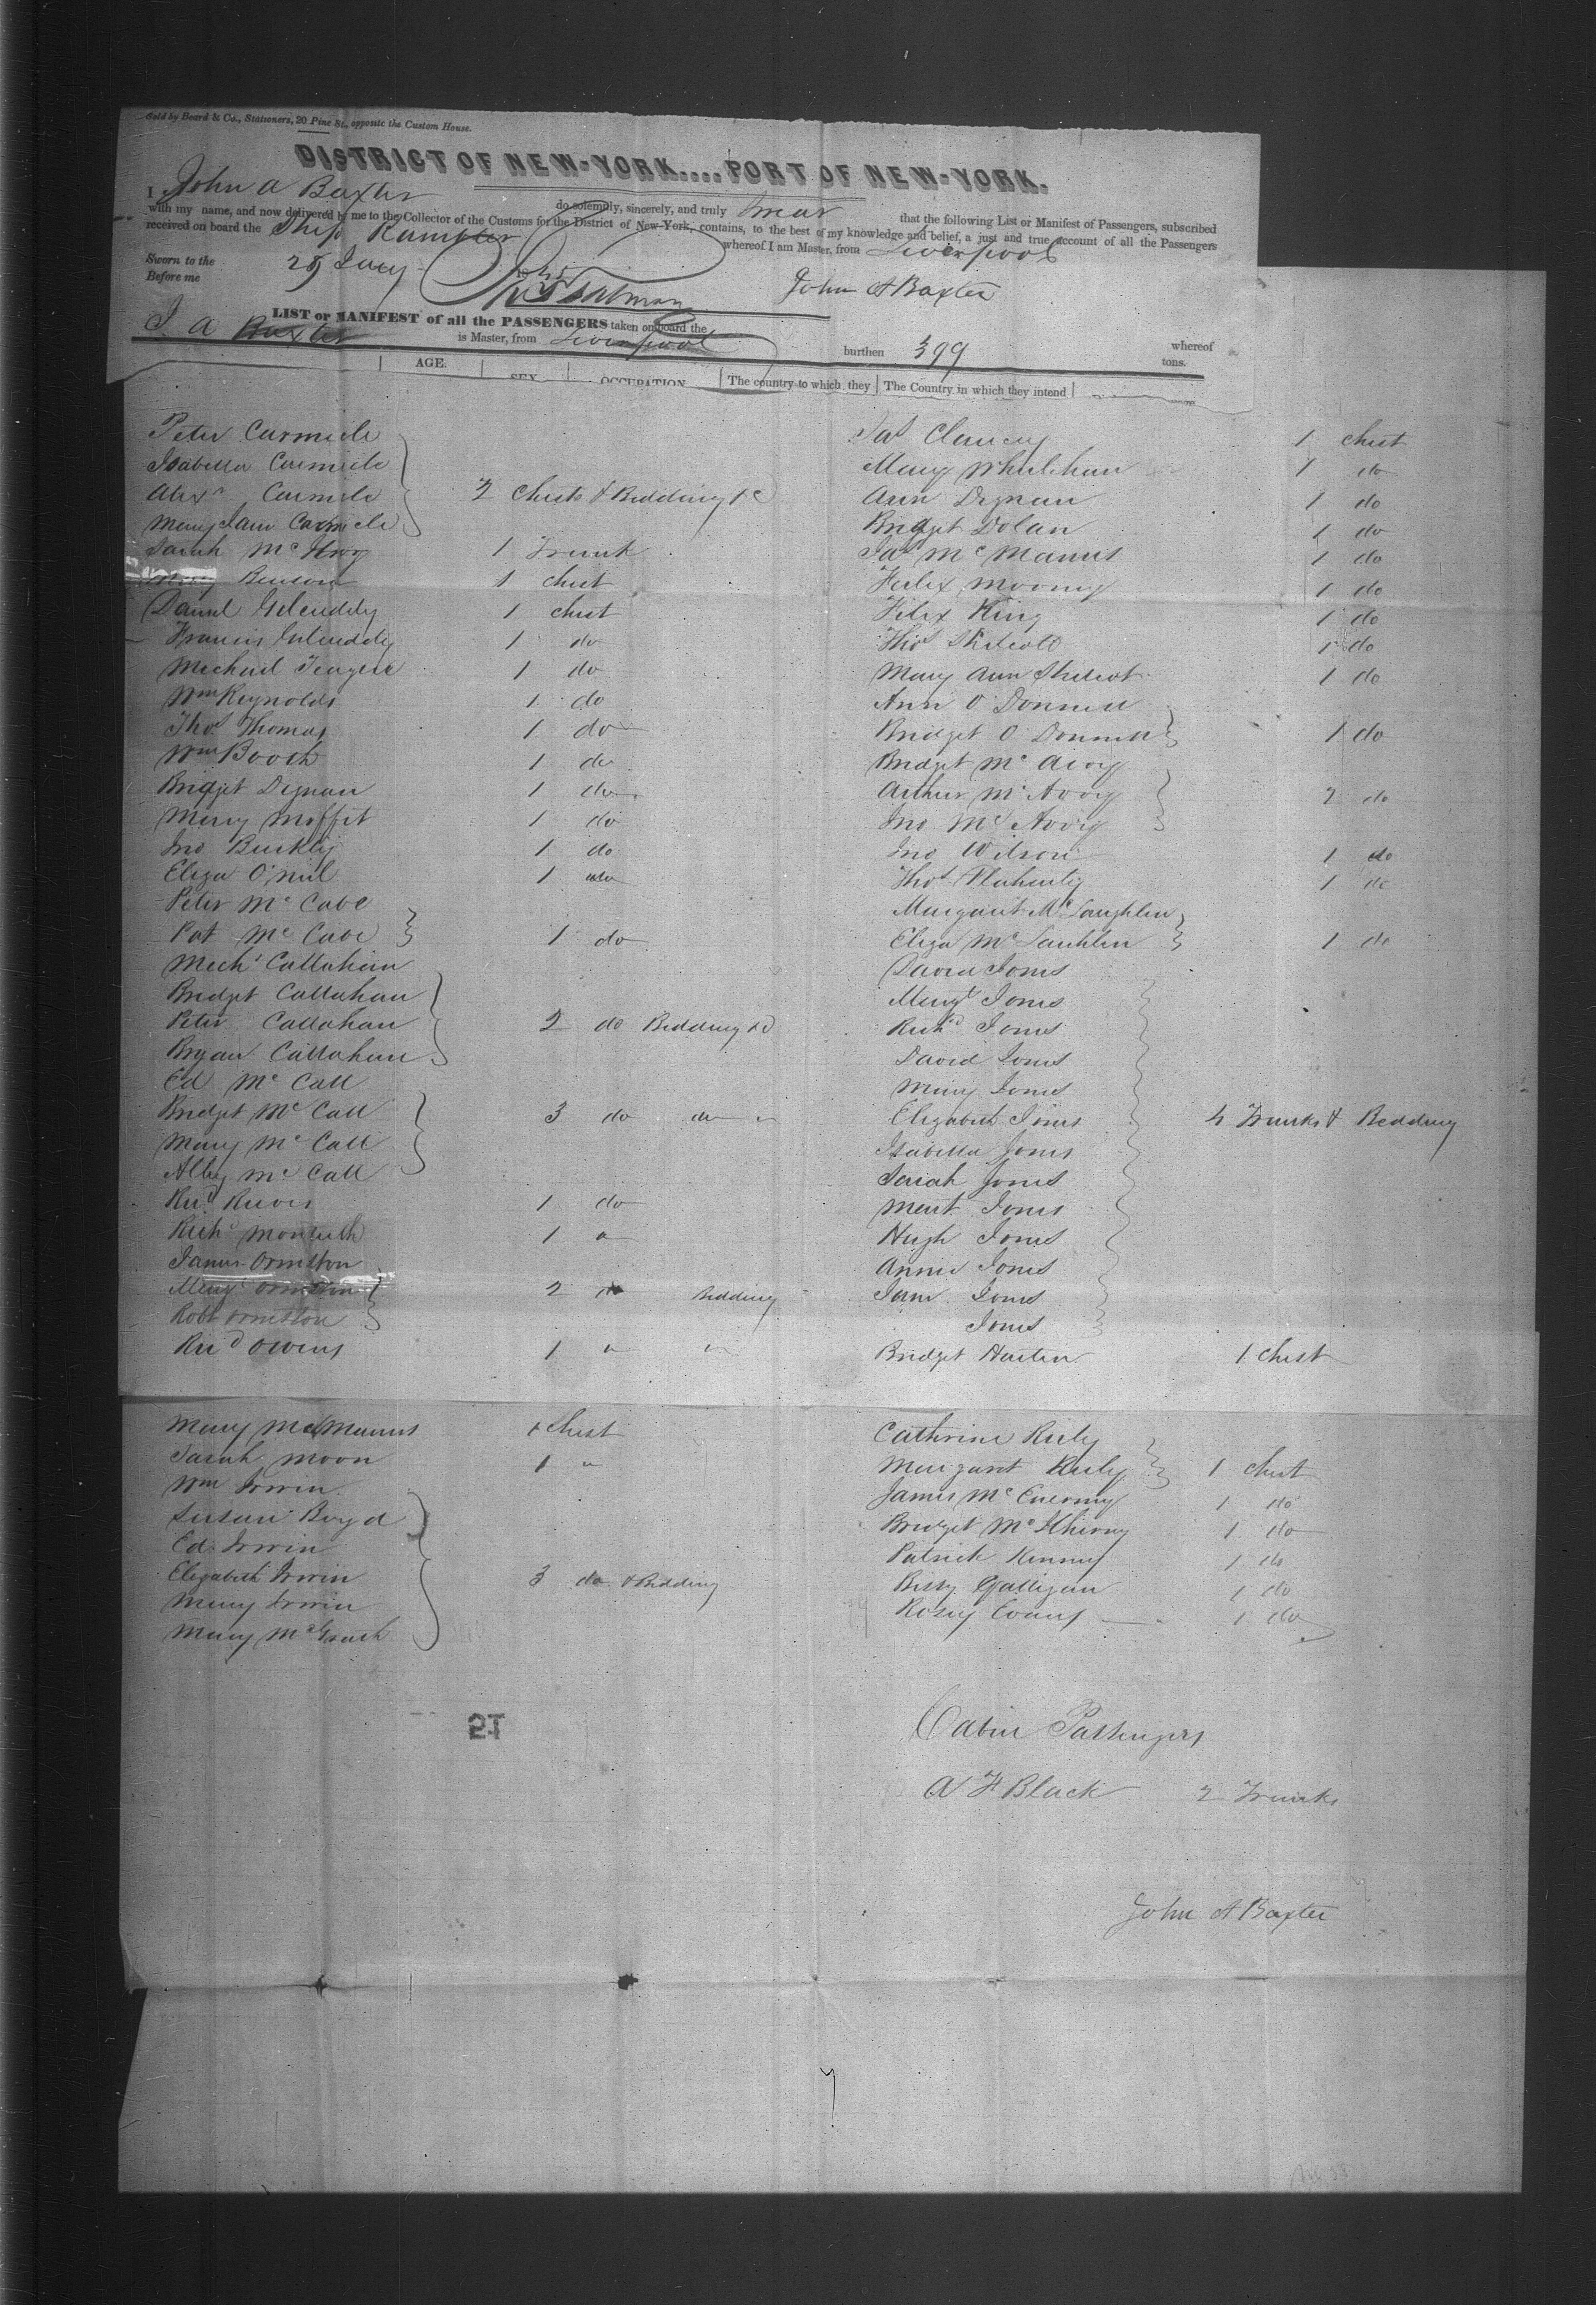 Sold by Beard & Co., Stationers, 20 Pine St., opposite the Custom House.
DISTRICT OF NEW-YORK....PORT OF NEW-YORK.
I John A Baxter do solemnly, sincerely, and truly swear that the following List or Manifest of Passengers, subscribed
with my name, and now delivered by me to the Collector of the Customs for the District of New-York, contains, to the best of my knowledge and belief, a just and true account of all the Passengers
received on board the Ship Rambler whereof I am Master, from Liverpool
Sworn to the 25 July
Before me
John A Baxter
LIST or MANIFEST of all the PASSENGERS taken on board the
J. A Baxter is Master, from Liverpool burthen 399 tons. whereof
AGE. SEX OCCUPATION The country to which they The Country in which they intend
Peter Carmicle
Isabella Carmicle
Alexr Carmicle 2 Chests & Bedding &c
Mary Jane Carmicle
Sarah 1 Trunk
Benson 1 chest
Daniel 1 chest
Francis 1 do
Michael 1 do
Wm Reynolds 1 do
Thos Thomas 1 do
Wm Booth 1 do
Bridget Dignan 1 do
Mary Moffit 1 do
Jno Buckley 1 do
Eliza O'Niel 1 do
Peter Mc Cabe
Pat Mc Cabe 1 do
Mich Callahan
Bridget Callahan
Peter Callahan 2 do Bedding &c
Bryan Callahan
Ed Mc Call
Bridget Mc Call 3 do do
Mary Mc Call
Alley Mc Call
Ricd Rieves 1 do
Richd 1 "
James Ormston
Margt Ormston 2 do Bedding
Robt Ormston
Ricd Owens 1 " "
Mary McManus 1 Chest
Sarah Moon 1 "
Wm Irwin
Susan Boyd
Ed. Irwin
Elizabeth Irwin 3 do & Bedding
Mary Irwin
Mary McGrath
Jas Clancey 1 Chest
Mary 1 do
Ann Dignan 1 do
Bridget Dolan 1 do
Jas Mc Manus 1 do
Felix Mooney 1 do
Felix King 1 do
Thos 1 do
Mary Ann 1 do
Ann O Donnell
Bridget O Donnell 1 do
Bridget Mc Avoy
Arthur Mc Avoy 2 do
Jno Mc Avoy
Jno Wilson 1 do
Thos Flaherty 1 do
Margaret McLaughlin
Eliza McLauhlin 1 do
David Jones
Margt Jones
Richd Jones
David Jones
Mary Jones
Elizabeth Jones 4 Trunks & Bedding
Isabella Jones
Sariah Jones
Jones
Hugh Jones
Annie Jones
Jane Jones
Jones
Bridget Harten 1 Chest
Cathrine Riely
Margaret Riely 1 Chest
James Mc 1 do
Bridget Mc 1 do
Patrick Kenney 1 do
Bissy Galligan 1 do
Rosey Evans 1 do
Cabin Passengers
A F Black 2 Trunks
John A Baxter